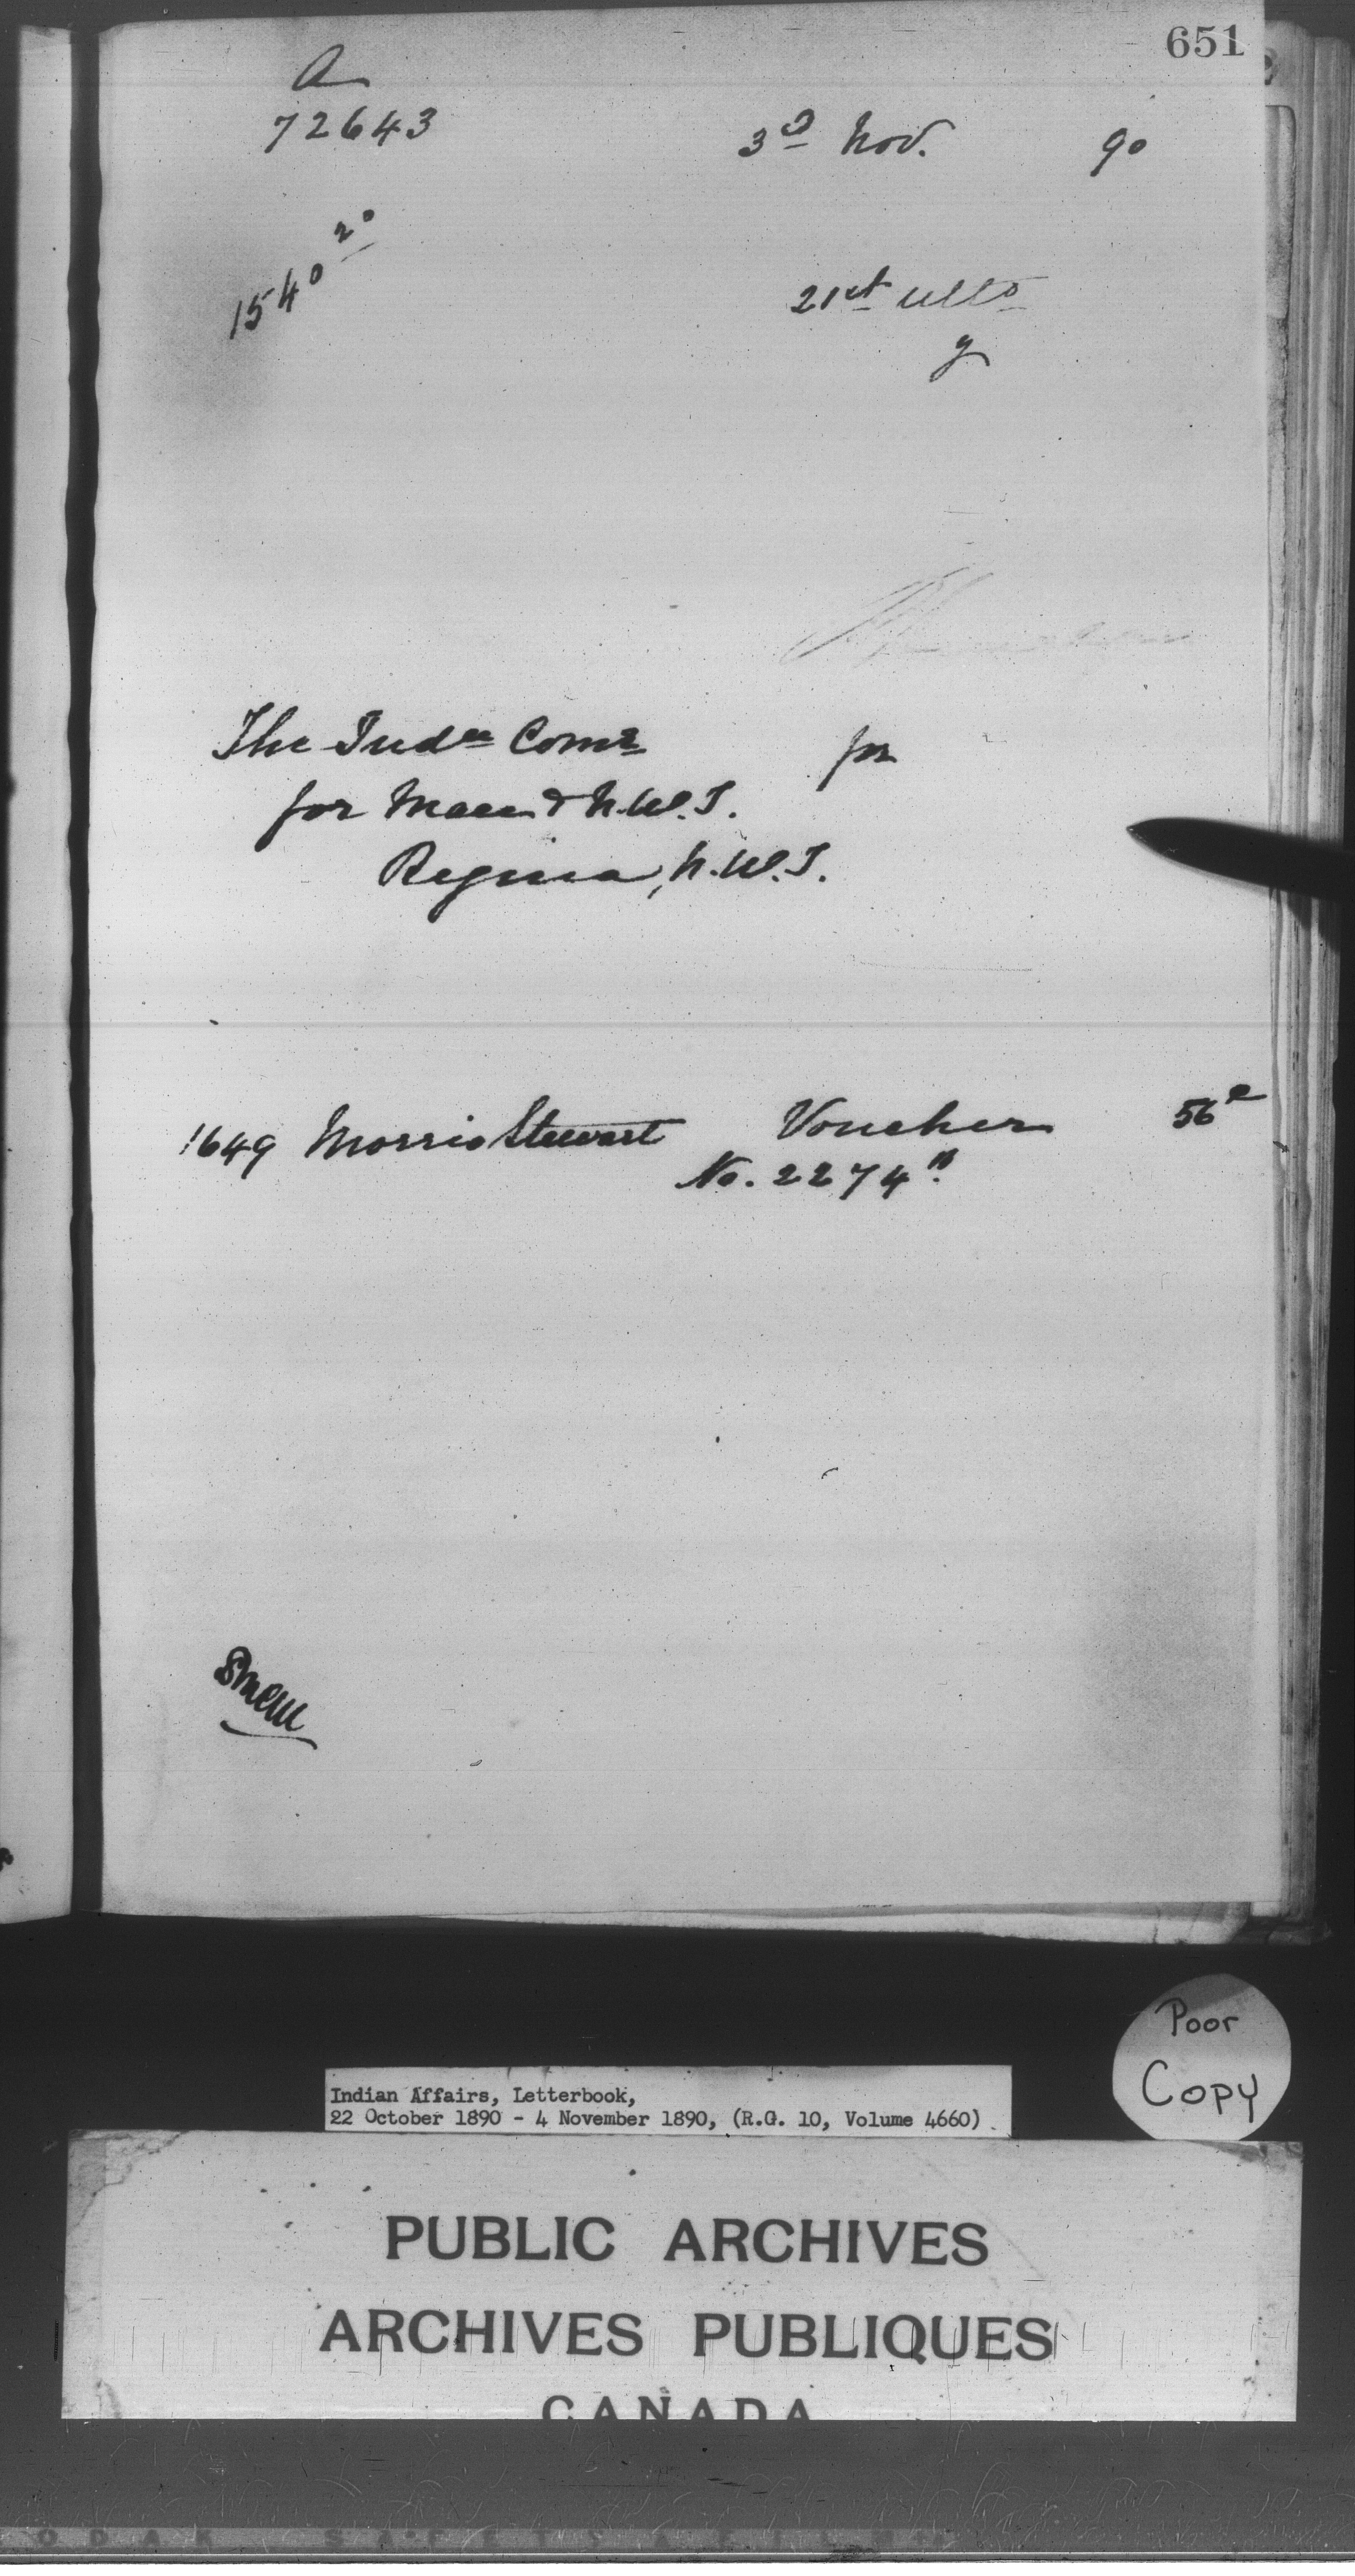 651
A
72643
3d Nov. 90
1540 20
21st ulto
y
The Indn Comr for
for Man & N.W.T.
Regina, N.W.T.
1649 Morris Stewart Voucher 56
No. 2274
Poor
Copy
Indian Affairs, Letterbook,
22 October 1890 - 4 November 1890, (R.G. 10, Volume 4660)
PUBLIC ARCHIVES
ARCHIVES PUBLIQUES
CANADA